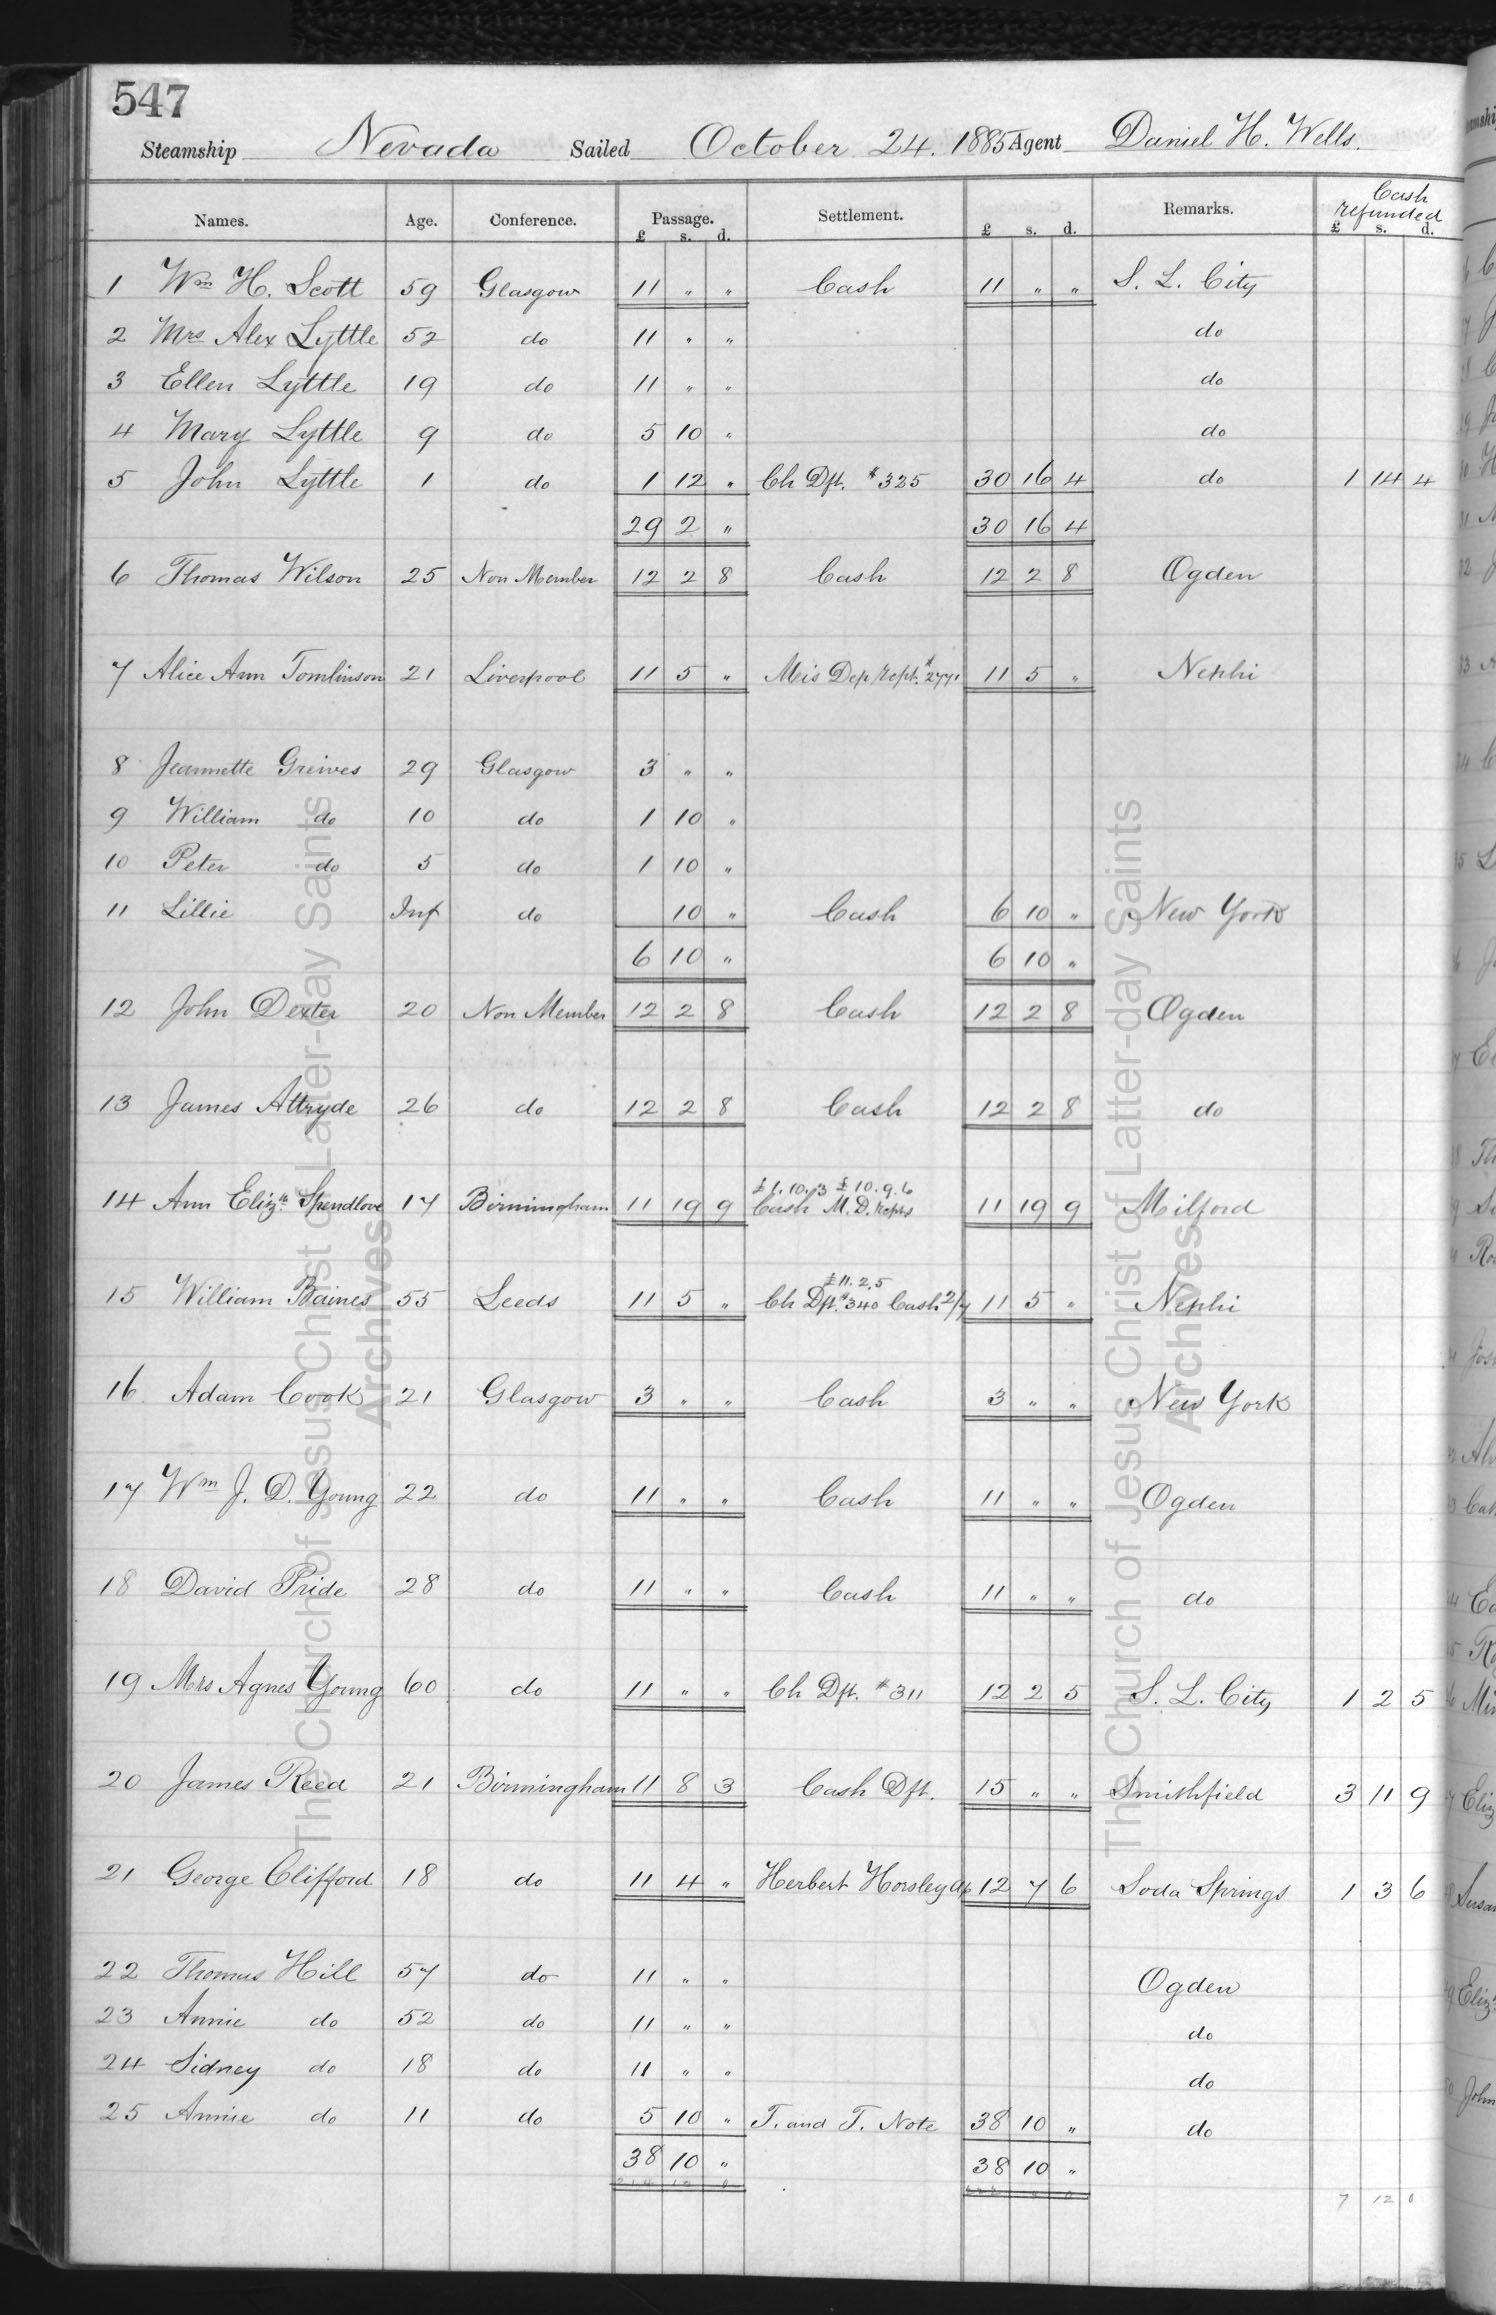 547
Steamship Nevada Sailed October 24. 1885 Agent Daniel H. Wells.
Names. Age. Conference. Passage. Settlement. Remarks. Cash refunded
£ s. d. £ s. d. £ s. d.
1 Wm H. Scott 59 Glasgow 11 " " Cash 11 " " S. L. City
2 Mrs Alex Lyttle 52 do 11 " " do
3 Ellen Lyttle 19 do 11 " " do
4 Mary Lyttle 9 do 5 10 " do
5 John Lyttle 1 do 1 12 " Ch Dft. #325 30 16 4 do 1 14 4
29 2 " 30 16 4
6 Thomas Wilson 25 Non Member 12 2 8 Cash 12 2 8 Ogden
7 Alice Ann Tomlinson 21 Liverpool 11 5 " Mis Dep rept. #2771 11 5 " Nephi
8 Jeannette Greives 29 Glasgow 3 " "
9 William do 10 do 1 10 "
10 Peter do 5 do 1 10 "
11 Lillie Inf do 10 " Cash 6 10 " New York
6 10 " 6 10 "
12 John Dexter 20 Non Member 12 2 8 Cash 12 2 8 Ogden
13 James Attryde 26 do 12 2 8 Cash 12 2 8 do
£1.10.3 £10.9.6
14 Ann Elizth Spendlove 17 Birmingham 11 19 9 Cash M. D. repts 11 19 9 Milford
£11.2.5
15 William Baines 55 Leeds 11 5 " Ch Dft. #340 Cash 2/7 11 5 " Nephi
16 Adam Cook 21 Glasgow 3 " " Cash 3 " " New York
17 Wm J. D. Young 22 do 11 " " Cash 11 " " Ogden
18 David Pride 28 do 11 " " Cash 11 " " do
19 Mrs Agnes Young 60 do 11 " " Ch Dft. #311 12 2 5 S. L. City 1 2 5
20 James Reed 21 Birmingham 11 8 3 Cash Dft. 15 " " Smithfield 3 11 9
21 George Clifford 18 do 11 4 " Herbert Horsley 12 7 6 Soda Springs 1 3 6
22 Thomas Hill 57 do 11 " " Ogden
23 Annie do 52 do 11 " " do
24 Sidney do 18 do 11 " " do
25 Annie do 11 do 5 10 " T. and T. Note 38 10 " do
38 10 " 38 10 "
7 12 0
The Church of Jesus Christ of Latter-day Saints
Archives
The Church of Jesus Christ of Latter-day Saints
Archives